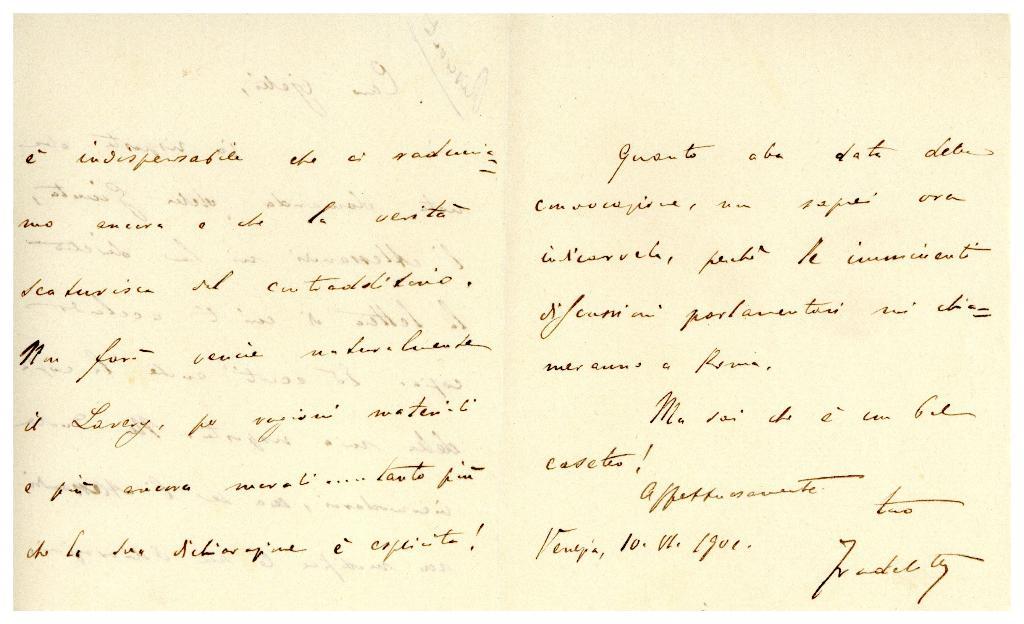 è indispensabile che ci radunia=
mo ancora e che la verità
scaturisca dal contradditorio.
Non farà venire naturalmente
il Lavery, per ragioni materiali
e più ancora morali.... tanto più
che la sua dichiarazione è esplicita!
Quanto alla data della
convocazione, non saprei ora
indicarvela, perché le imminenti
discussioni parlamentari mi chia=
meranno a Roma.
Ma sai che è un bel
casetto!
Affettuosamente
tuo
Venezia, 10. VI. 1901.
Fradeletto